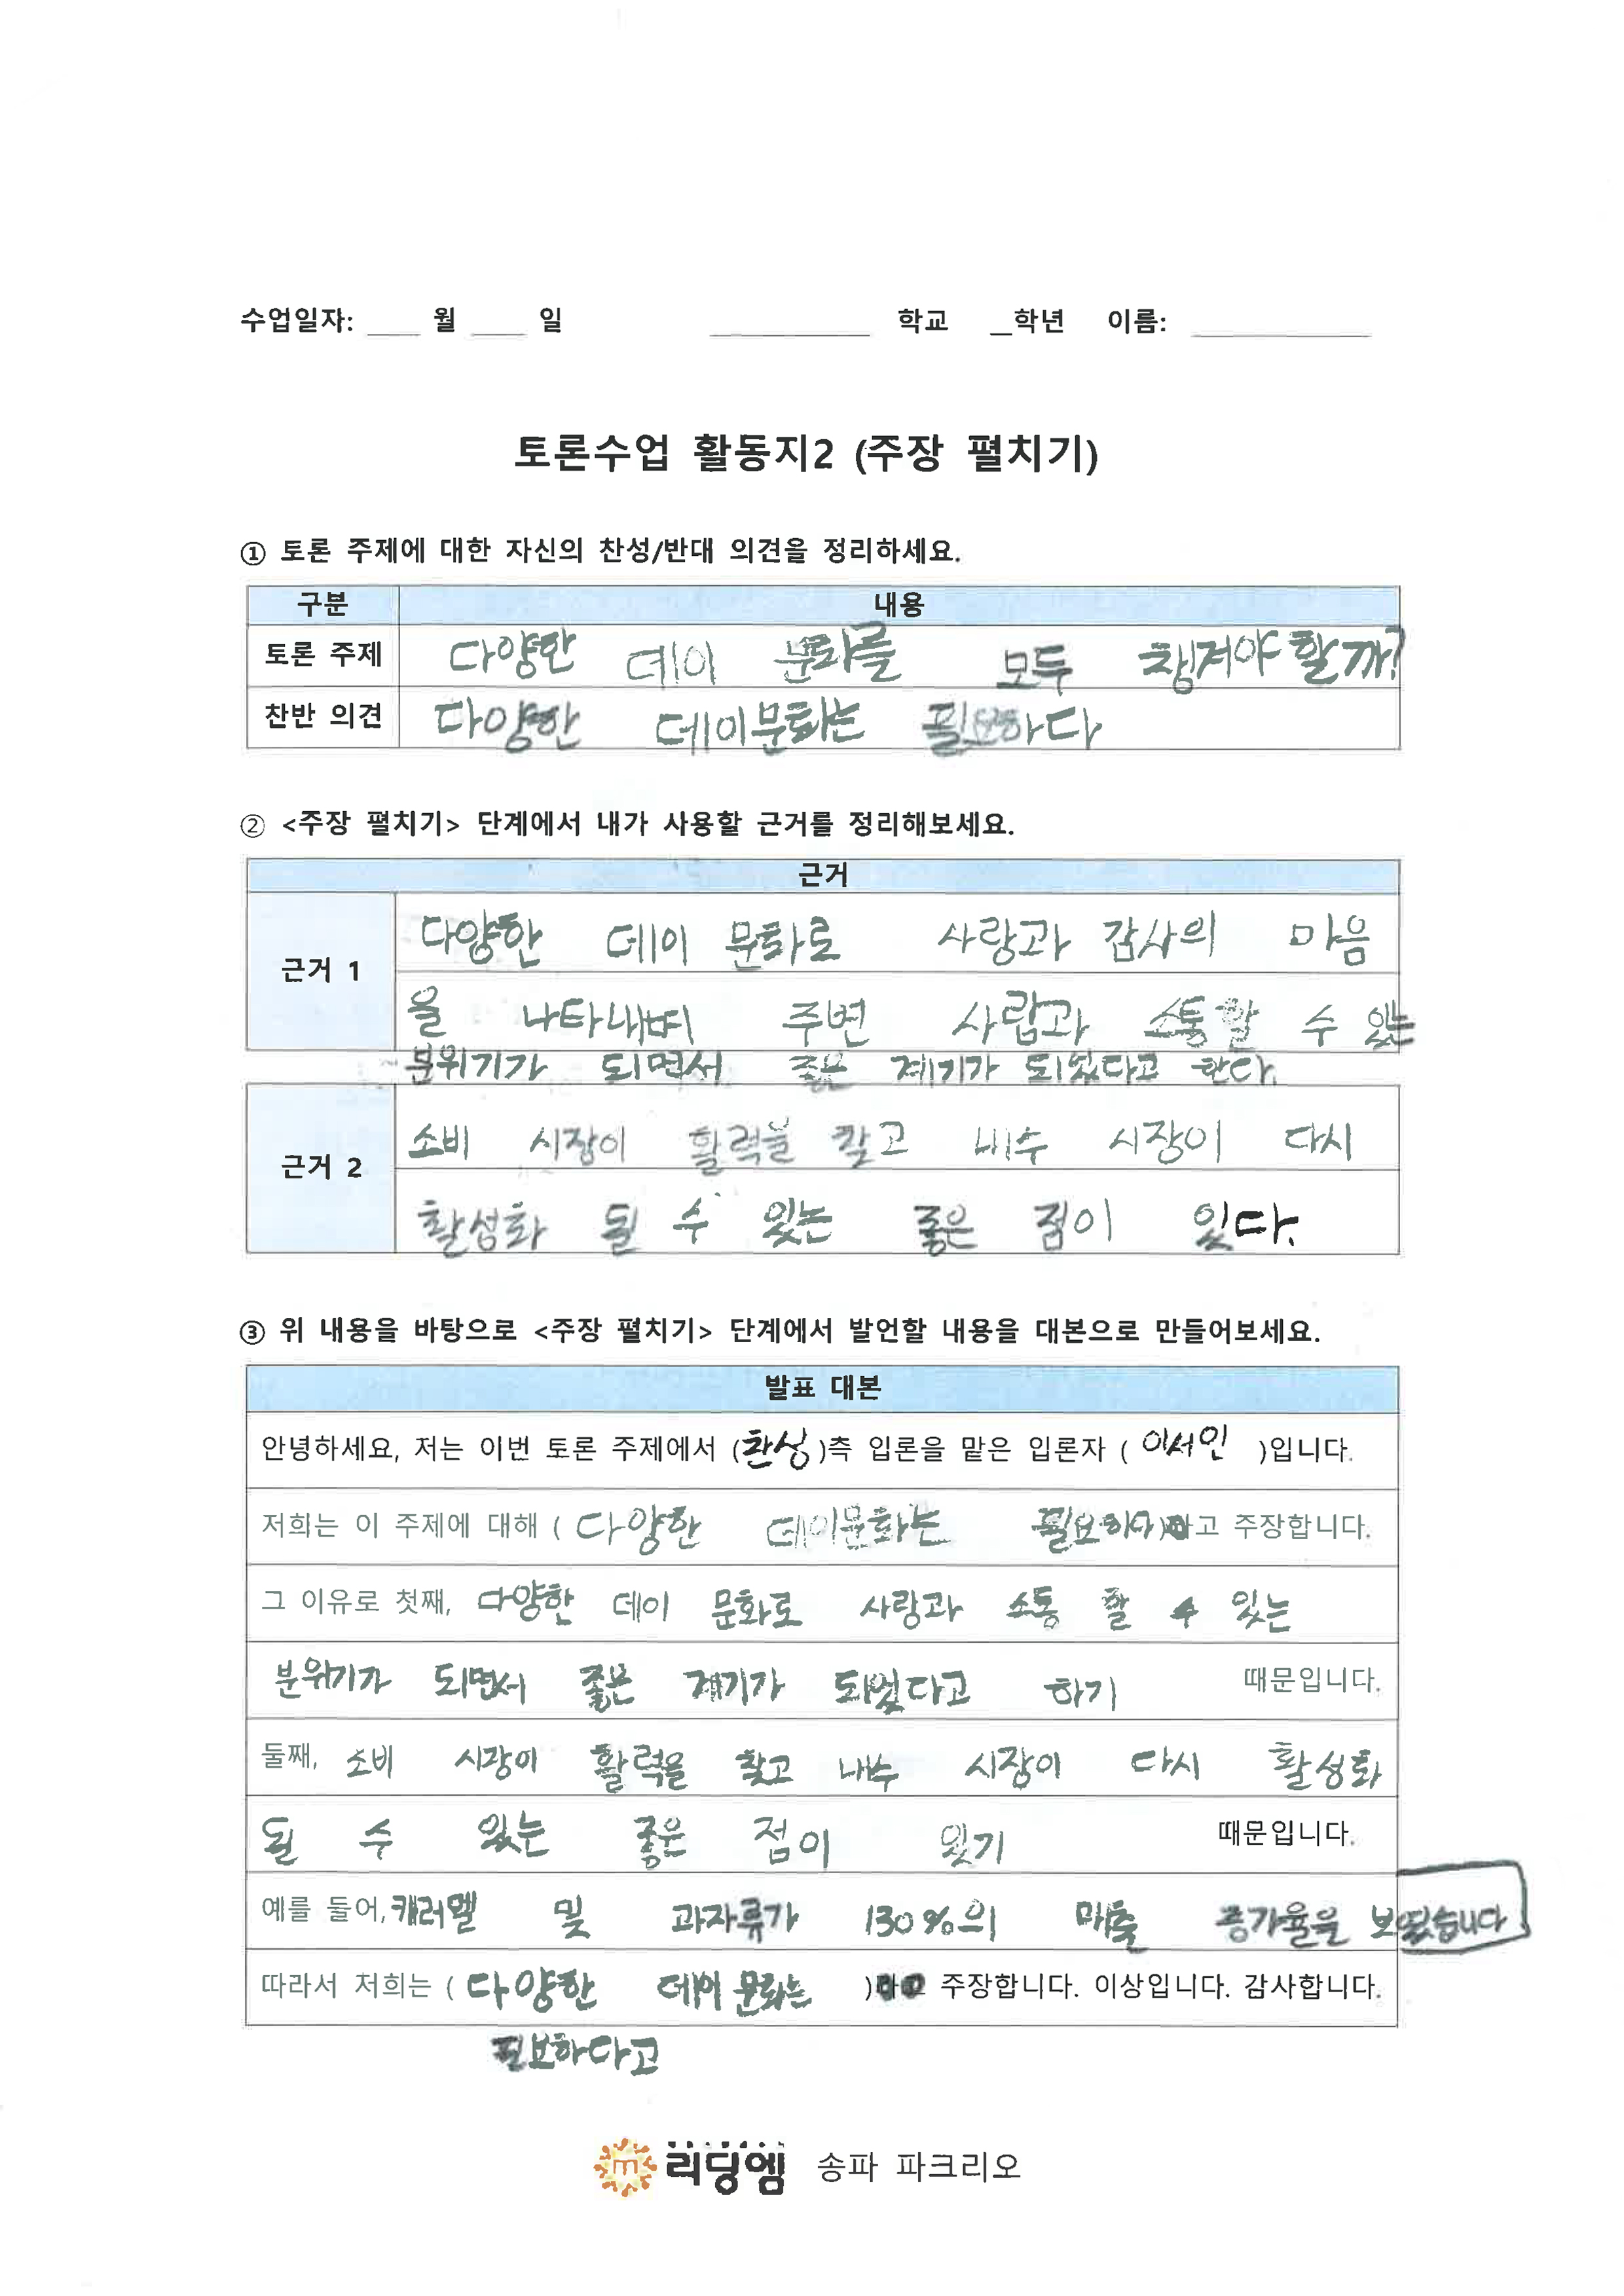 수업일자: ____ 월 ____ 일 ____________ 학교 __학년 이름: ______________
토론수업 활동지2 (주장 펼치기)
① 토론 주제에 대한 자신의 찬성/반대 의견을 정리하세요.
구분 내용
토론 주제 다양한 데이 문화를 모두 챙겨야 할까?
찬반 의견 다양한 데이문화는 필요하다
② <주장 펼치기> 단계에서 내가 사용할 근거를 정리해보세요.
근거
다양한 데이 문화로 사랑과 감사의 마음
근거 1
을 나타내며 주변 사람과 소통할 수 있는
분위기가 되면서 좋은 계기가 되었다고 한다.
소비 시장이 활력을 찾고 내수 시장이 다시
근거 2
활성화 될 수 있는 좋은 점이 있다.
③ 위 내용을 바탕으로 <주장 펼치기> 단계에서 발언할 내용을 대본으로 만들어보세요.
발표 대본
안녕하세요, 저는 이번 토론 주제에서 (찬성)측 입론을 맡은 입론자 ( 이서인 )입니다.
저희는 이 주제에 대해 ( 다양한 데이문화는 필요하다)고 주장합니다.
그 이유로 첫째, 다양한 데이 문화로 사랑과 소통 할 수 있는
분위기가 되면서 좋은 계기가 되었다고 하기 때문입니다.
둘째, 소비 시장이 활력을 찾고 내수 시장이 다시 활성화
될 수 있는 좋은 점이 있기 때문입니다.
예를 들어, 캐러멜 및 과자류가 130%의 매출 증가율을 보였습니다
따라서 저희는 ( 다양한 데이 문화는 ) 주장합니다. 이상입니다. 감사합니다.
필요하다고
리딩엠 송파 파크리오